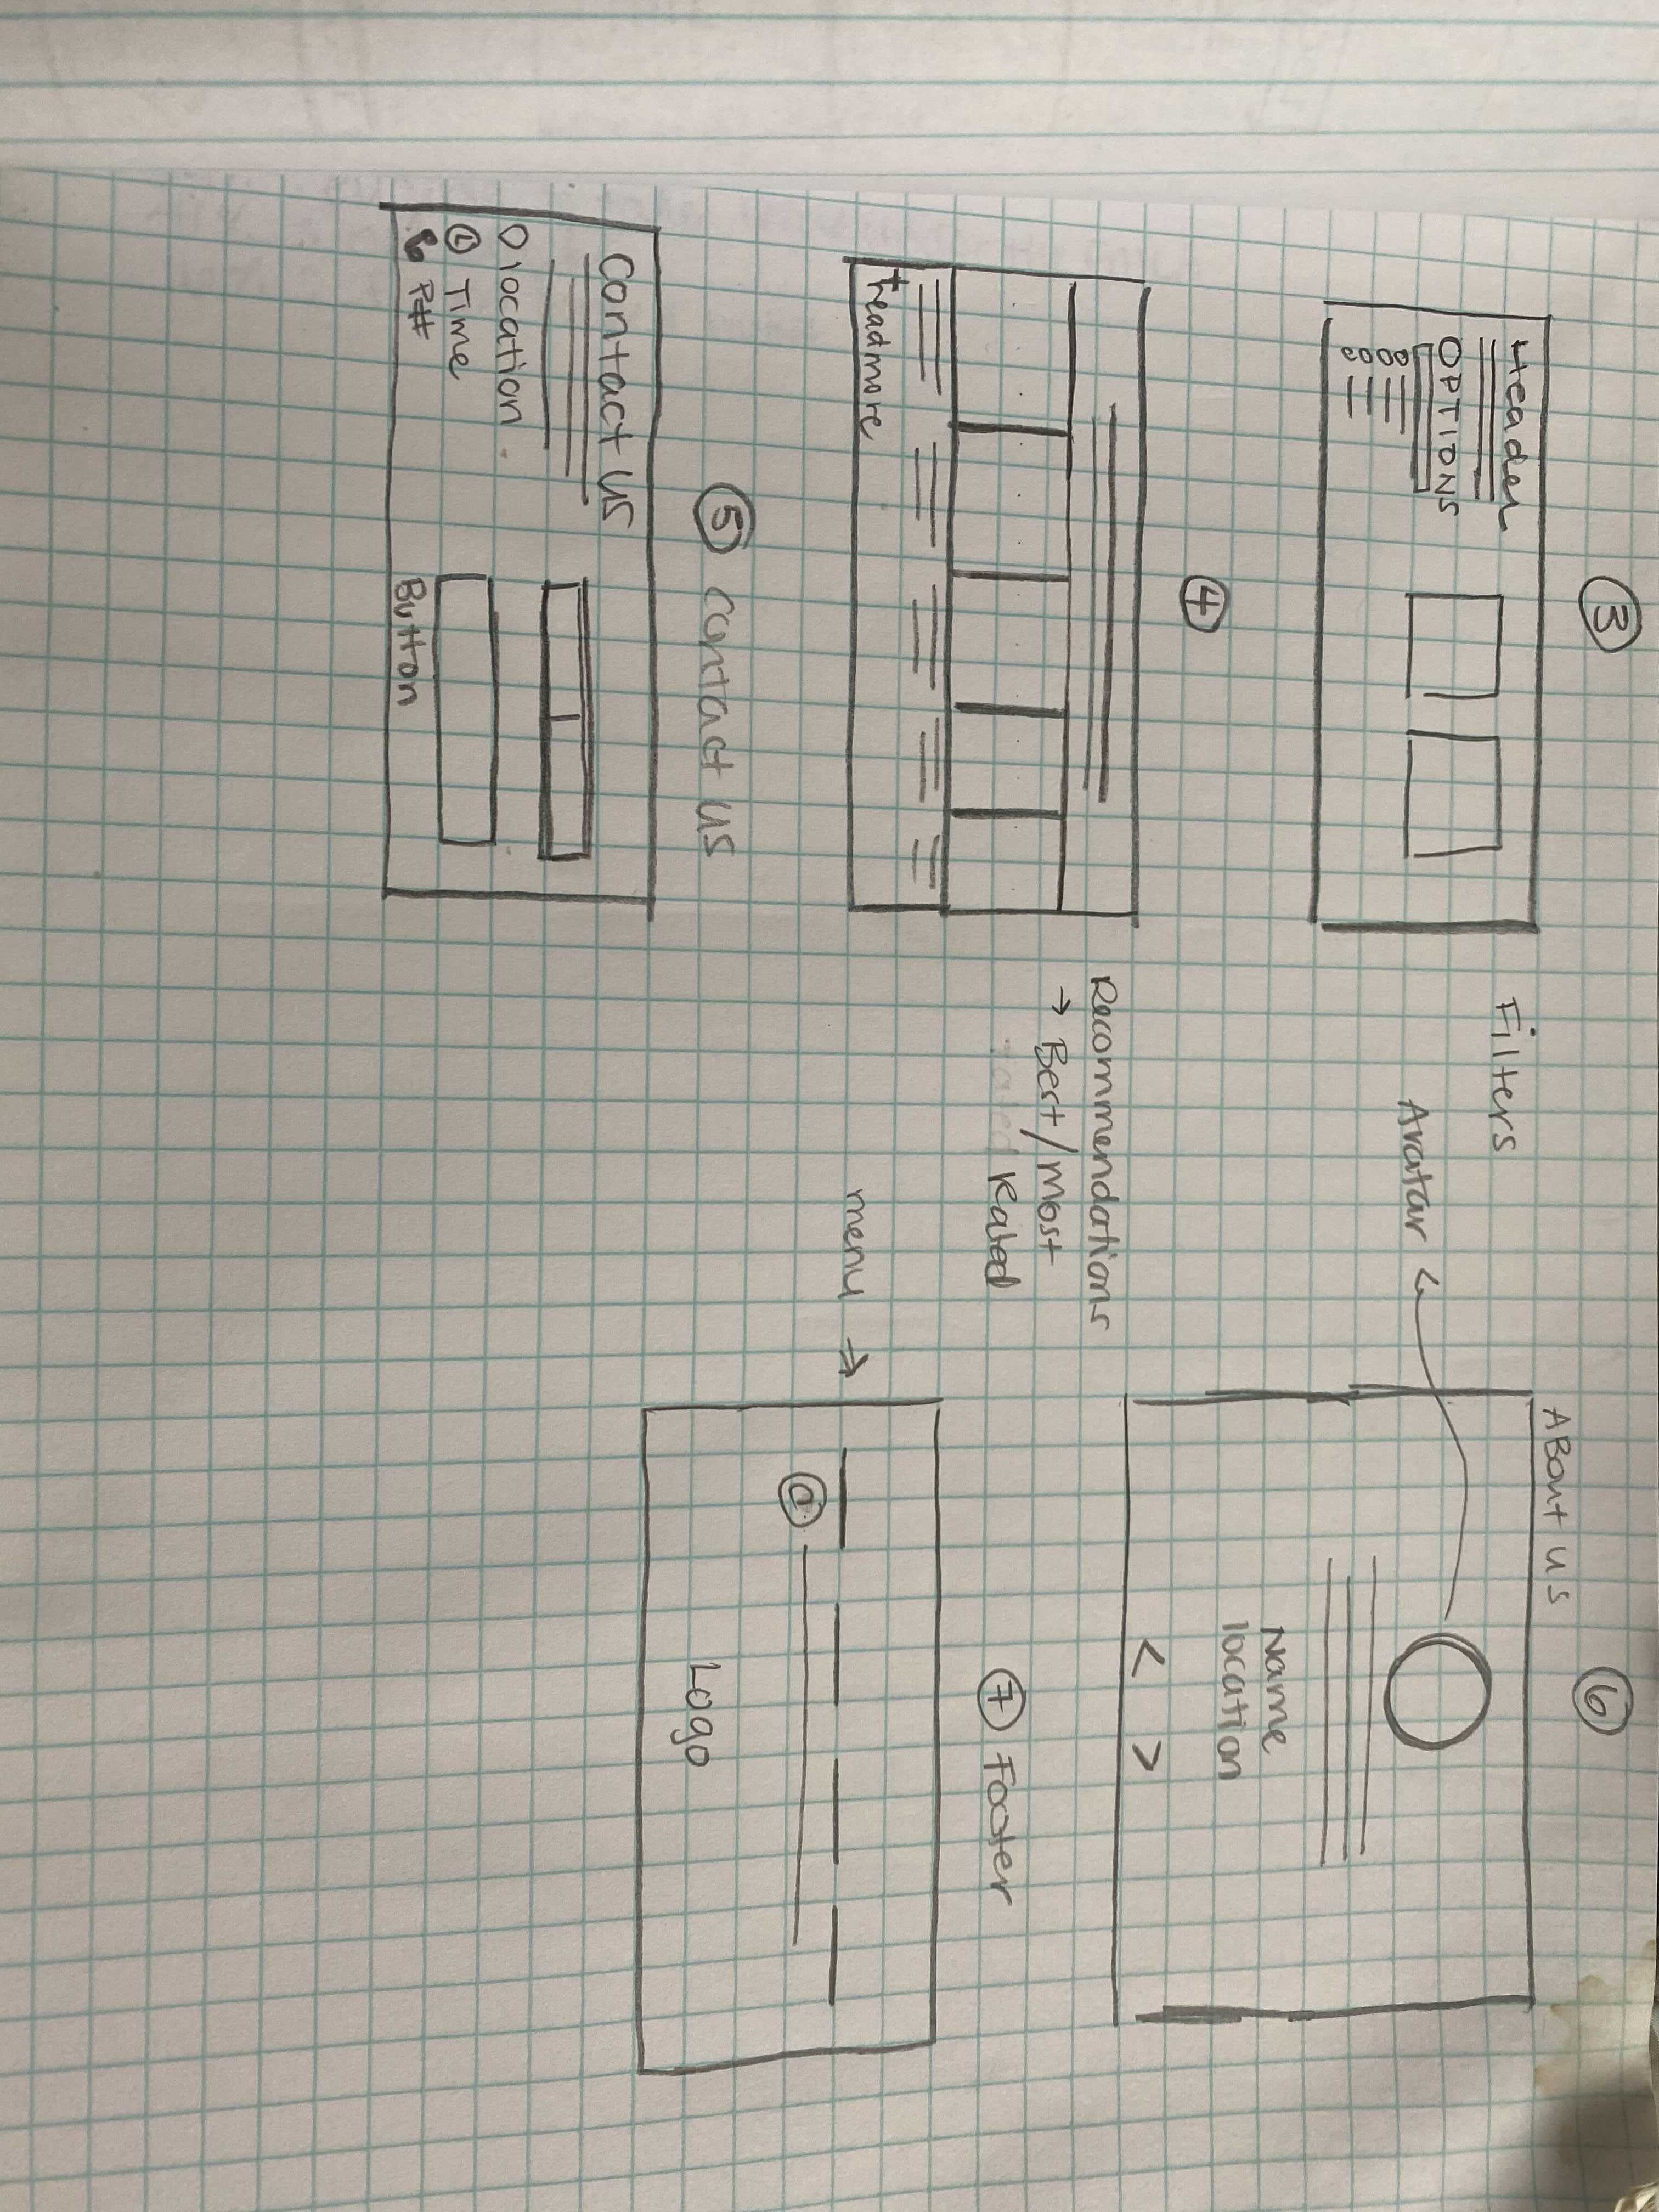 3
Header
OPTIONS
Filters
4
+readmore
Recommendations
→ Best/most
Rated
5 contact us
Contact us
location
Time
P#
Button
6
ABout us
Avatar
Name
location
< >
7 Footer
menu →
Logo